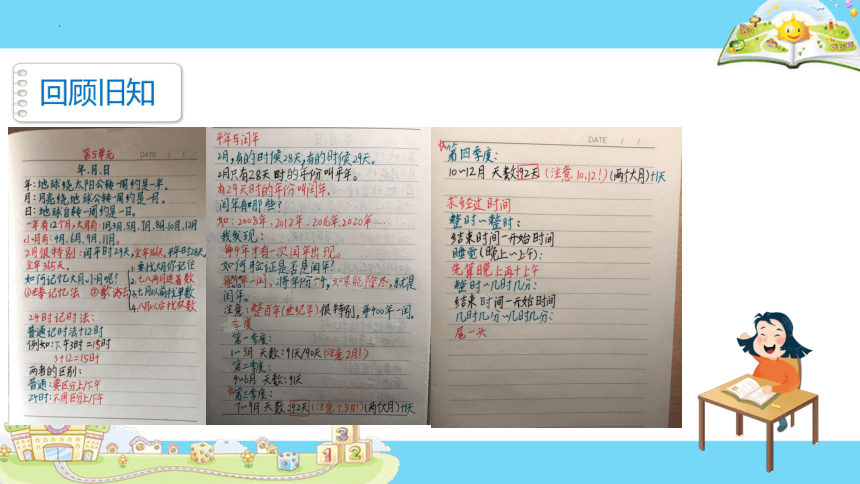 回顾旧知
第5单元
DATE / /
年、月、日
年:地球绕太阳公转一周约是一年。
月:月亮绕地球公转一周约一月。
日:地球自转一周约是一日。
一年有12个月,大月有:1月、3月、5月、7月、8月、10月、12月
小月有:4月、6月、9月、11月。
2月很特别:闰年时29天,全年366天,平年时28天,
全年365天。
如何记忆大月小月呢?
①拳记忆法 ②歌诀法
1.要找大月你记住
2.七八两月连着数
3.七月以前找单数
4.八月以后找双数
24时记时法:
普通记时法+12时
例如:下午3时=15时
3+12=15时
两者的区别:
普通:要区分上/下午
24时:不用区分上/下午
平年与闰年
2月,有的时候28天,有的时候29天。
2月只有28天时的年份叫平年。
有29天时的年份叫闰年。
闰年有哪些?
如:2008年、2012年、2016年、2020年……
我发现:
每4年才有一次闰年出现。
如何验证是否是闰年?
每4年一闰,将年份÷4,如果能除尽,就是
闰年。
注意:整百年(世纪年)很特别,每400年一闰。
季度
第一季度:
1~3月 天数:91天/90天(注意2月!)
第二季度:
4~6月 天数:91天
第三季度:
7~9月 天数:92天(注意7.8月!)(两个大月)+1天
DATE / /
第四季度:
10~12月 天数:92天(注意.10.12!)(两个大月)+1天
求经过时间
整时~整时:
结束时间-开始时间
睡觉(晚上~上午):
先算晚上再+上午
整时~几时几分:
结束时间-开始时间
几时几分~几时几分:
尾-头